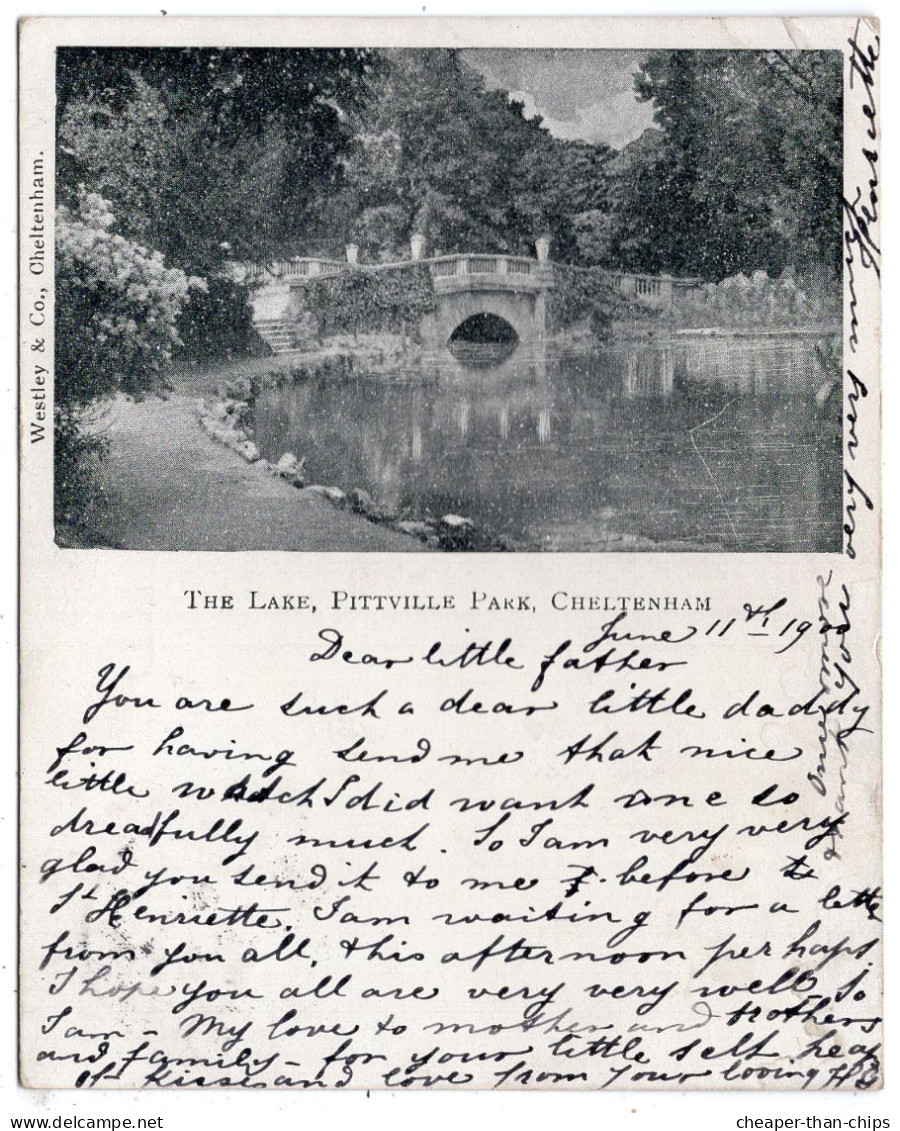 Westley & Co., Cheltenham.
THE LAKE, PITTVILLE PARK, CHELTENHAM
June 11th 19
Dear little father
You are such a dear little daddy
for having send me that nice
little watch I did want one so
dreadfully much. So I am very very
glad you send it to me before
St Henriette. I am waiting for a letter
from you all, this afternoon perhaps.
I hope you all are very very well. So
I am - My love to mother and brothers
and family - for your little self heap
of kisses and love from your loving
Once more
thank you
very very much
Henriette
cheaper-than-chips